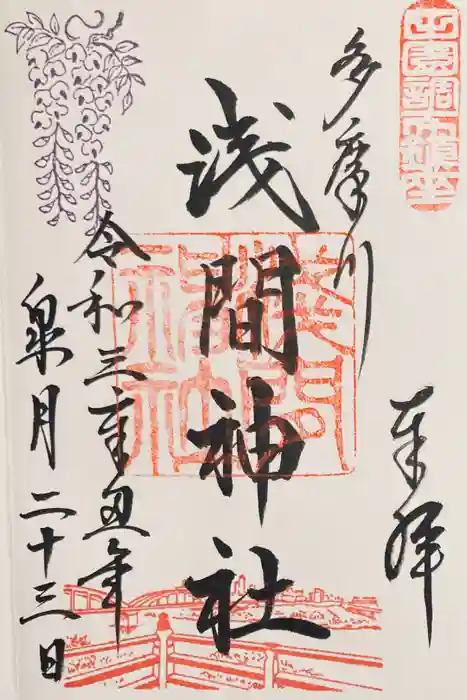 田園調布鎮座
奉拝
多摩川
浅間神社
浅間
神社
令和三辛丑年
皐月二十三日